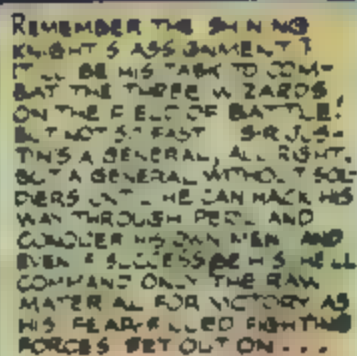 REMEMBER THE SHINING
KNIGHT'S ASSIGNMENT?
IT'LL BE HIS TASK TO COM-
BAT THE THREE WIZARDS
ON THE FIELD OF BATTLE!
BUT NOT SO FAST... SIR JUS-
TIN'S A GENERAL, ALL RIGHT,
BUT A GENERAL WITHOUT SOL-
DIERS UNTIL HE CAN HACK HIS
WAY THROUGH PERIL AND
CONQUER HIS OWN MEN! AND
EVEN IF SUCCESS BE HIS HE'LL
COMMAND ONLY THE RAW
MATERIAL FOR VICTORY AS
HIS FEAR-FILLED FIGHTING
FORCES SET OUT ON...